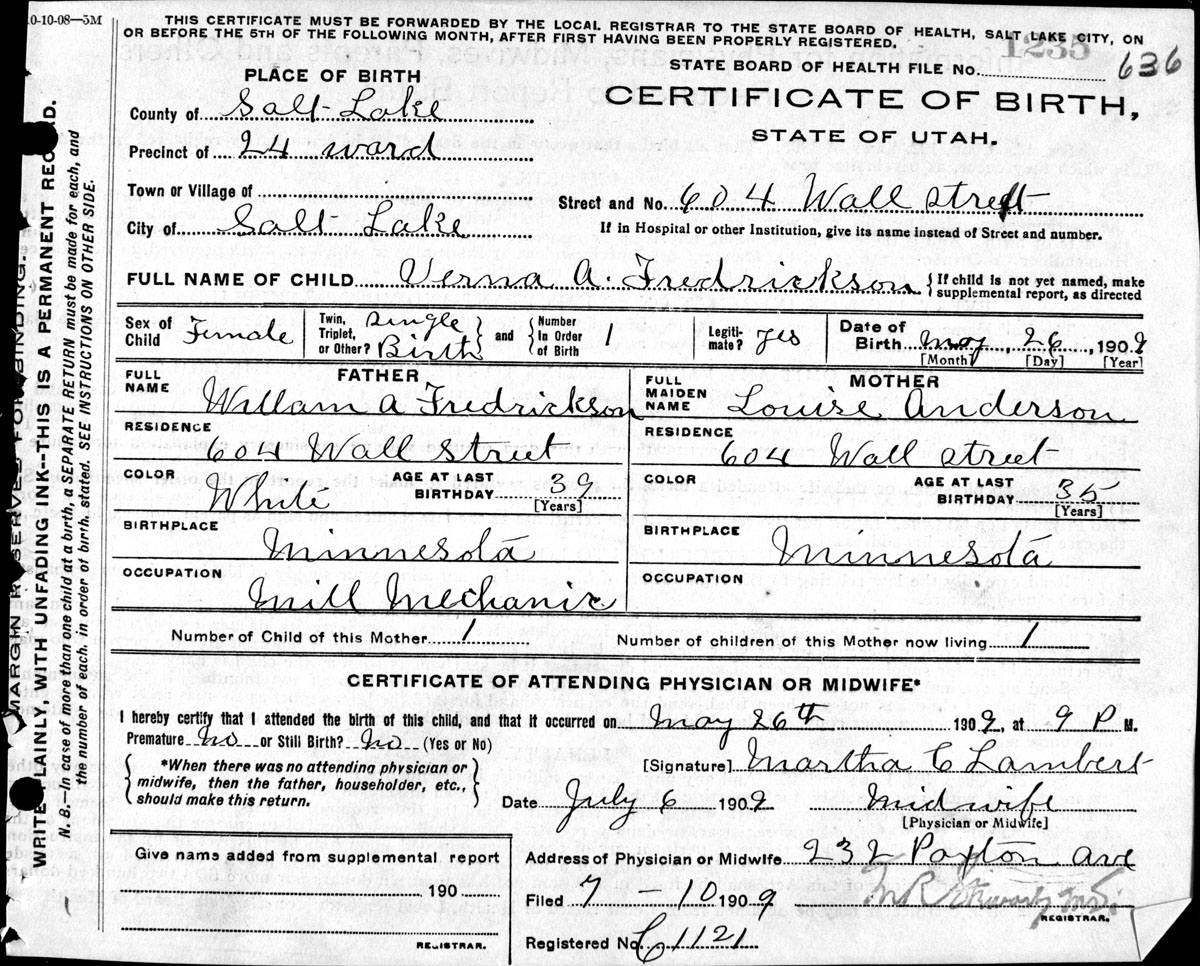 0-10-08—5M
THIS CERTIFICATE MUST BE FORWARDED BY THE LOCAL REGISTRAR TO THE STATE BOARD OF HEALTH, SALT LAKE CITY, ON
OR BEFORE THE 5TH OF THE FOLLOWING MONTH, AFTER FIRST HAVING BEEN PROPERLY REGISTERED.
1235
STATE BOARD OF HEALTH FILE No. 636
CERTIFICATE OF BIRTH,
STATE OF UTAH.
PLACE OF BIRTH
County of Salt Lake
Precinct of 24 ward
Town or Village of
City of Salt Lake
Street and No. 604 Wall Street
If in Hospital or other Institution, give its name instead of Street and number.
FULL NAME OF CHILD Verna A. Fredrickson {If child is not yet named, make supplemental report, as directed
Sex of Child Female
Twin, Triplet, or Other? Single Birth
and {Number In Order of Birth 1
Legitimate? yes
Date of Birth May, 26, 1909
[Month] [Day] [Year]
FATHER
FULL NAME Willam A Fredrickson
RESIDENCE 604 Wall Street
COLOR White AGE AT LAST BIRTHDAY 39 [Years]
BIRTHPLACE Minnesota
OCCUPATION Mill Mechanic
MOTHER
FULL MAIDEN NAME Louise Anderson
RESIDENCE 604 Wall Street
COLOR AGE AT LAST BIRTHDAY 35 [Years]
BIRTHPLACE Minnesota
OCCUPATION
Number of Child of this Mother 1 Number of children of this Mother now living 1
CERTIFICATE OF ATTENDING PHYSICIAN OR MIDWIFE*
I hereby certify that I attended the birth of this child, and that it occurred on May 26th 1909, at 9 P M.
Premature No or Still Birth? No (Yes or No)
{*When there was no attending physician or
midwife, then the father, householder, etc.,
should make this return.}
[Signature] Martha C Lambert
Date July 6 1909 Midwife
[Physician or Midwife]
Address of Physician or Midwife 232 Paxton Ave
Filed 7 10 1909
REGISTRAR.
Registered No. C 1121
Give name added from supplemental report
190
REGISTRAR.
MARGIN RESERVED FOR BINDING.
WRITE PLAINLY WITH UNFADING INK--THIS IS A PERMANENT RECORD.
N. B.—In case of more than one child at a birth, a SEPARATE RETURN must be made for each, and
the number of each, in order of birth, stated. SEE INSTRUCTIONS ON OTHER SIDE.